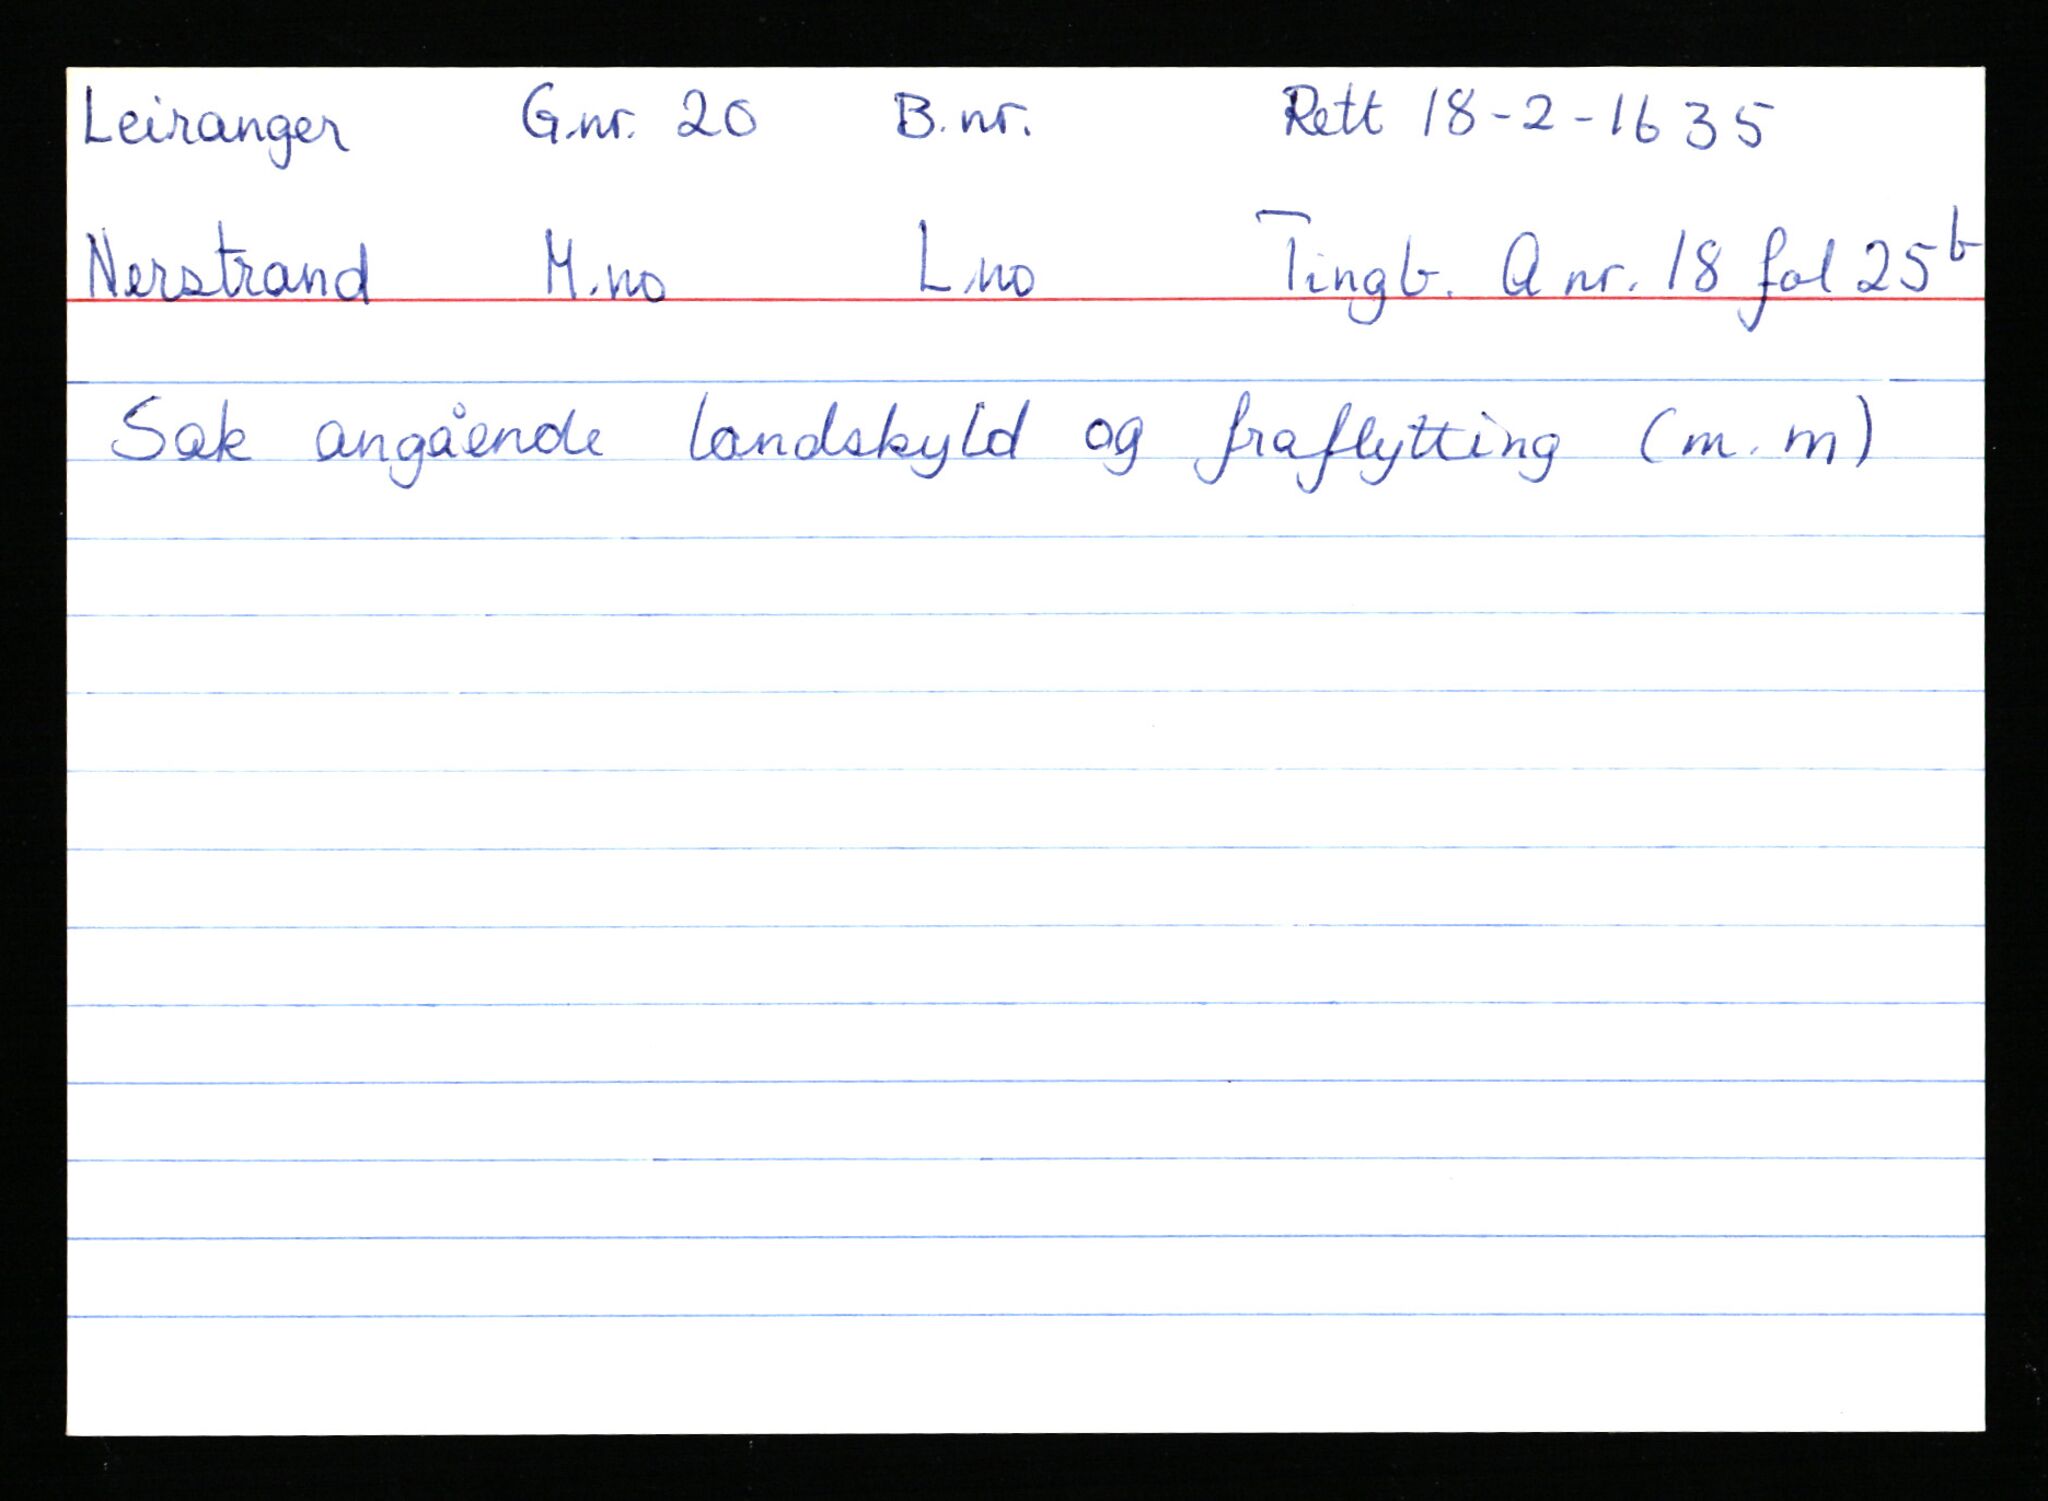 Leiranger G.nr. 20 B.nr. Rett 18-2-1635
Nerstrand M.no L.no Tingb. A nr. 18 fol 25b
Sak angående landskyld og fraflytting (m.m)